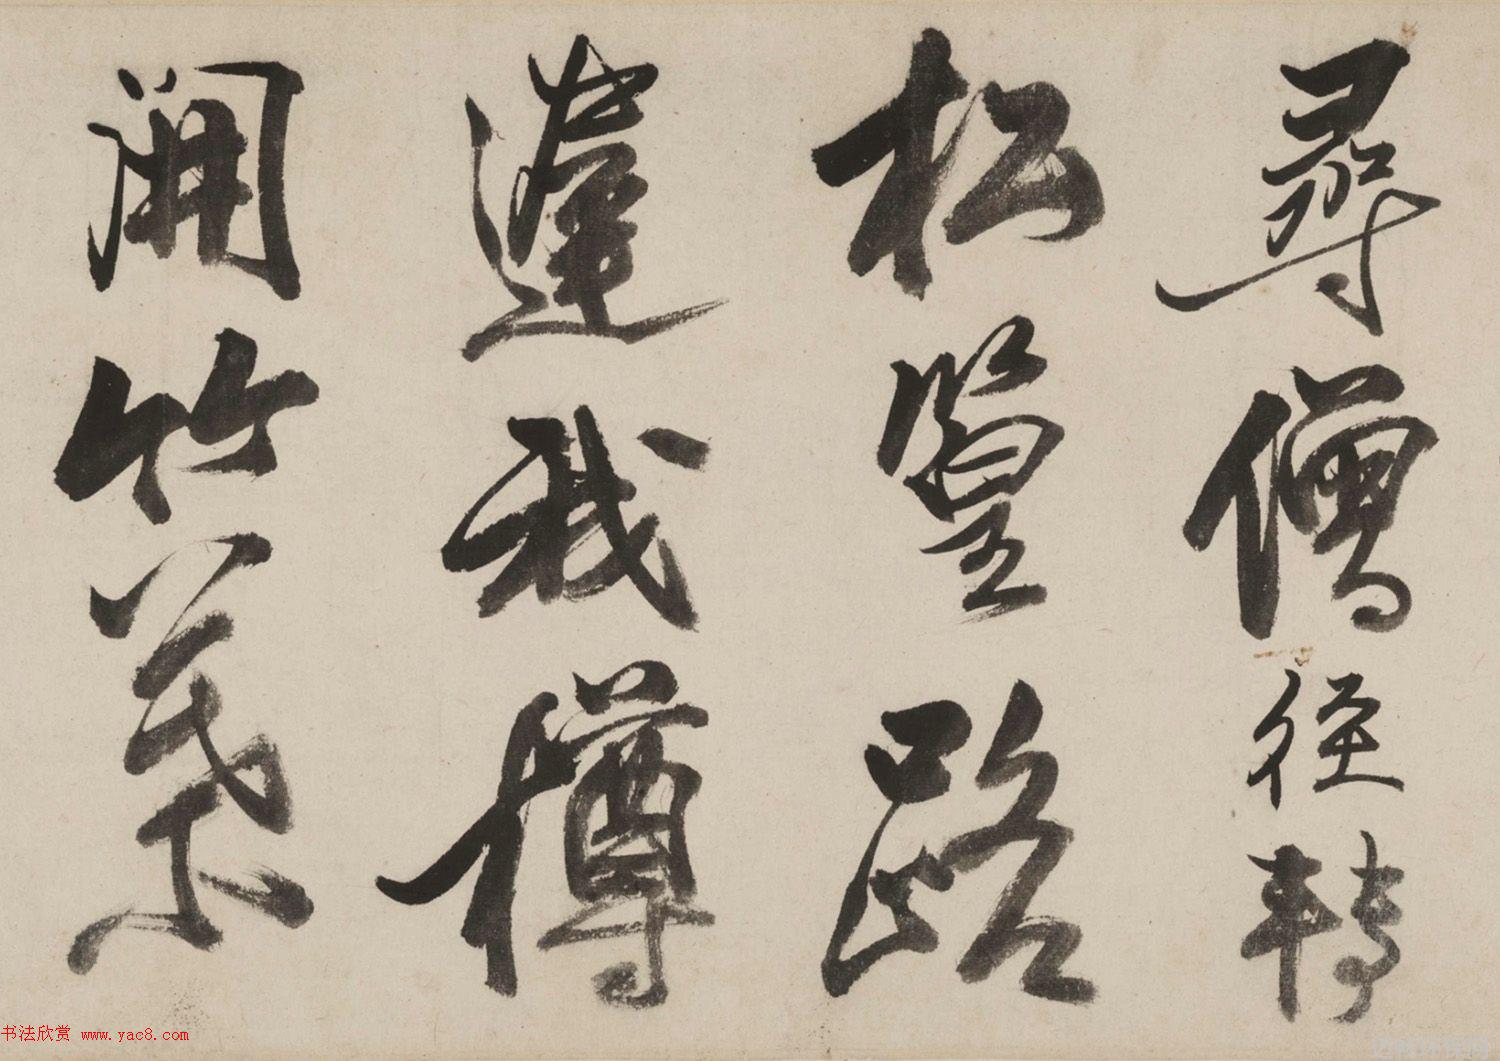 尋僧徑轉
松篁路
邀我樽
開竹葉
书法欣赏 www.yac8.com